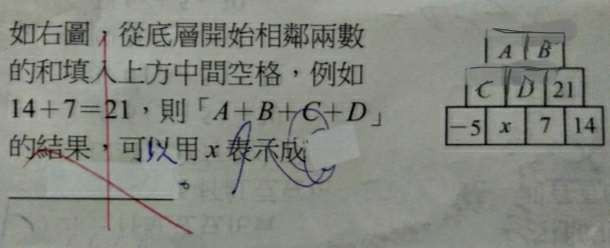 如右圖，從底層開始相鄰兩數
的和填入上方中間空格，例如
14+7=21，則「A+B+C+D」
的結果，可以用 x 表示成
。
A B
C D 21
-5 x 7 14